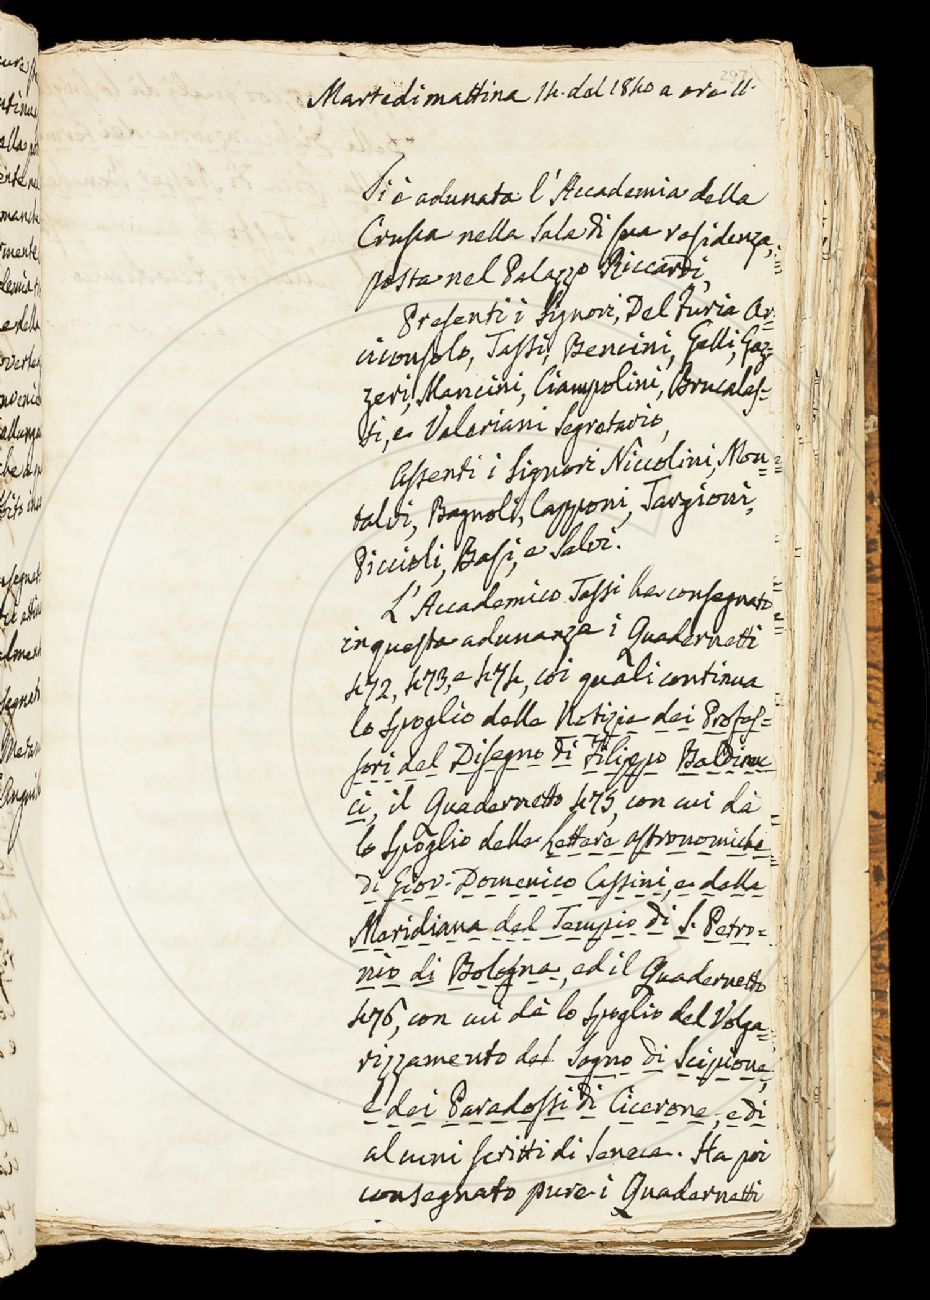 297
Martedi mattina 14. del 1840 a ore 11.
Si è adunata l'Accademia della
Crusca nella Sala di sua residenza,
posta nel Palazzo Riccardi,
Presenti i Signori, Del Furia Ar-
ciconsolo, Tassi, Bencini, Gelli, Gaz-
zeri, Mancini, Ciampolini, Brucalas-
si, e Valeriani Segretario,
Assenti i Signori Niccolini, Mon-
talvi, Bagnoli, Capponi, Targioni,
Piccioli, Basi, e Salvi.
L'Accademico Tassi ha consegnato
in questa adunanza i Quadernetti
472, 473, e 474, coi quali continua
lo spoglio delle Notizie dei Profes-
sori del Disegno di Filippo Baldinuc
ci, il Quadernetto 475, con cui dà
lo spoglio delle Lettere astronomiche
di Giov. Domenico Cassini, e della
Meridiana del Tempio di S. Petro-
nio di Bologna, ed il Quadernetto
476, con cui dà lo spoglio del Volga-
rizzamento del Sogno di Scipione,
e dei Paradossi di Cicerone, e di
alcuni scritti di Seneca. Ha poi
consegnato pure i Quadernetti